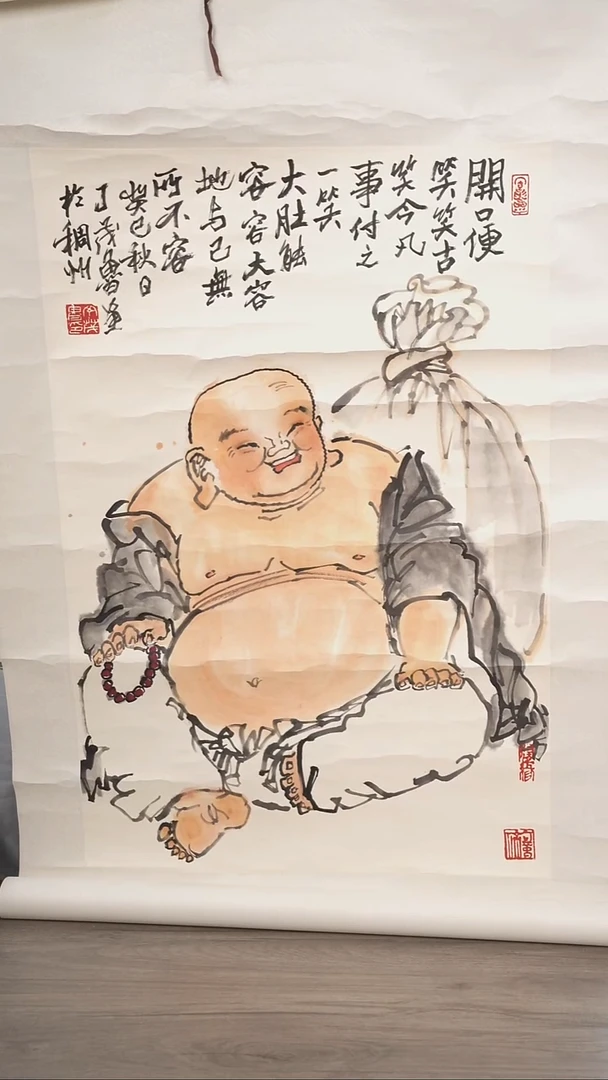 開口便
笑笑古
笑今凡
事付之
一笑
大肚能
容容大容
地与己無
所不容
癸巳秋日
丁茂魯
於稠州